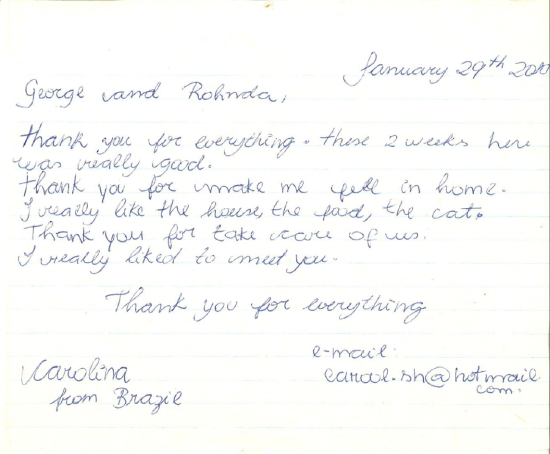 January 29th 2010
George and Rohnda,
thank you for everything. these 2 weeks here
was really good.
thank you for make me fell in home.
I really like the house, the food, the cat.
Thank you for take care of us.
I really liked to meet you.
Thank you for everything
Karolina
from Brazil
e-mail:
@hotmail.
com.